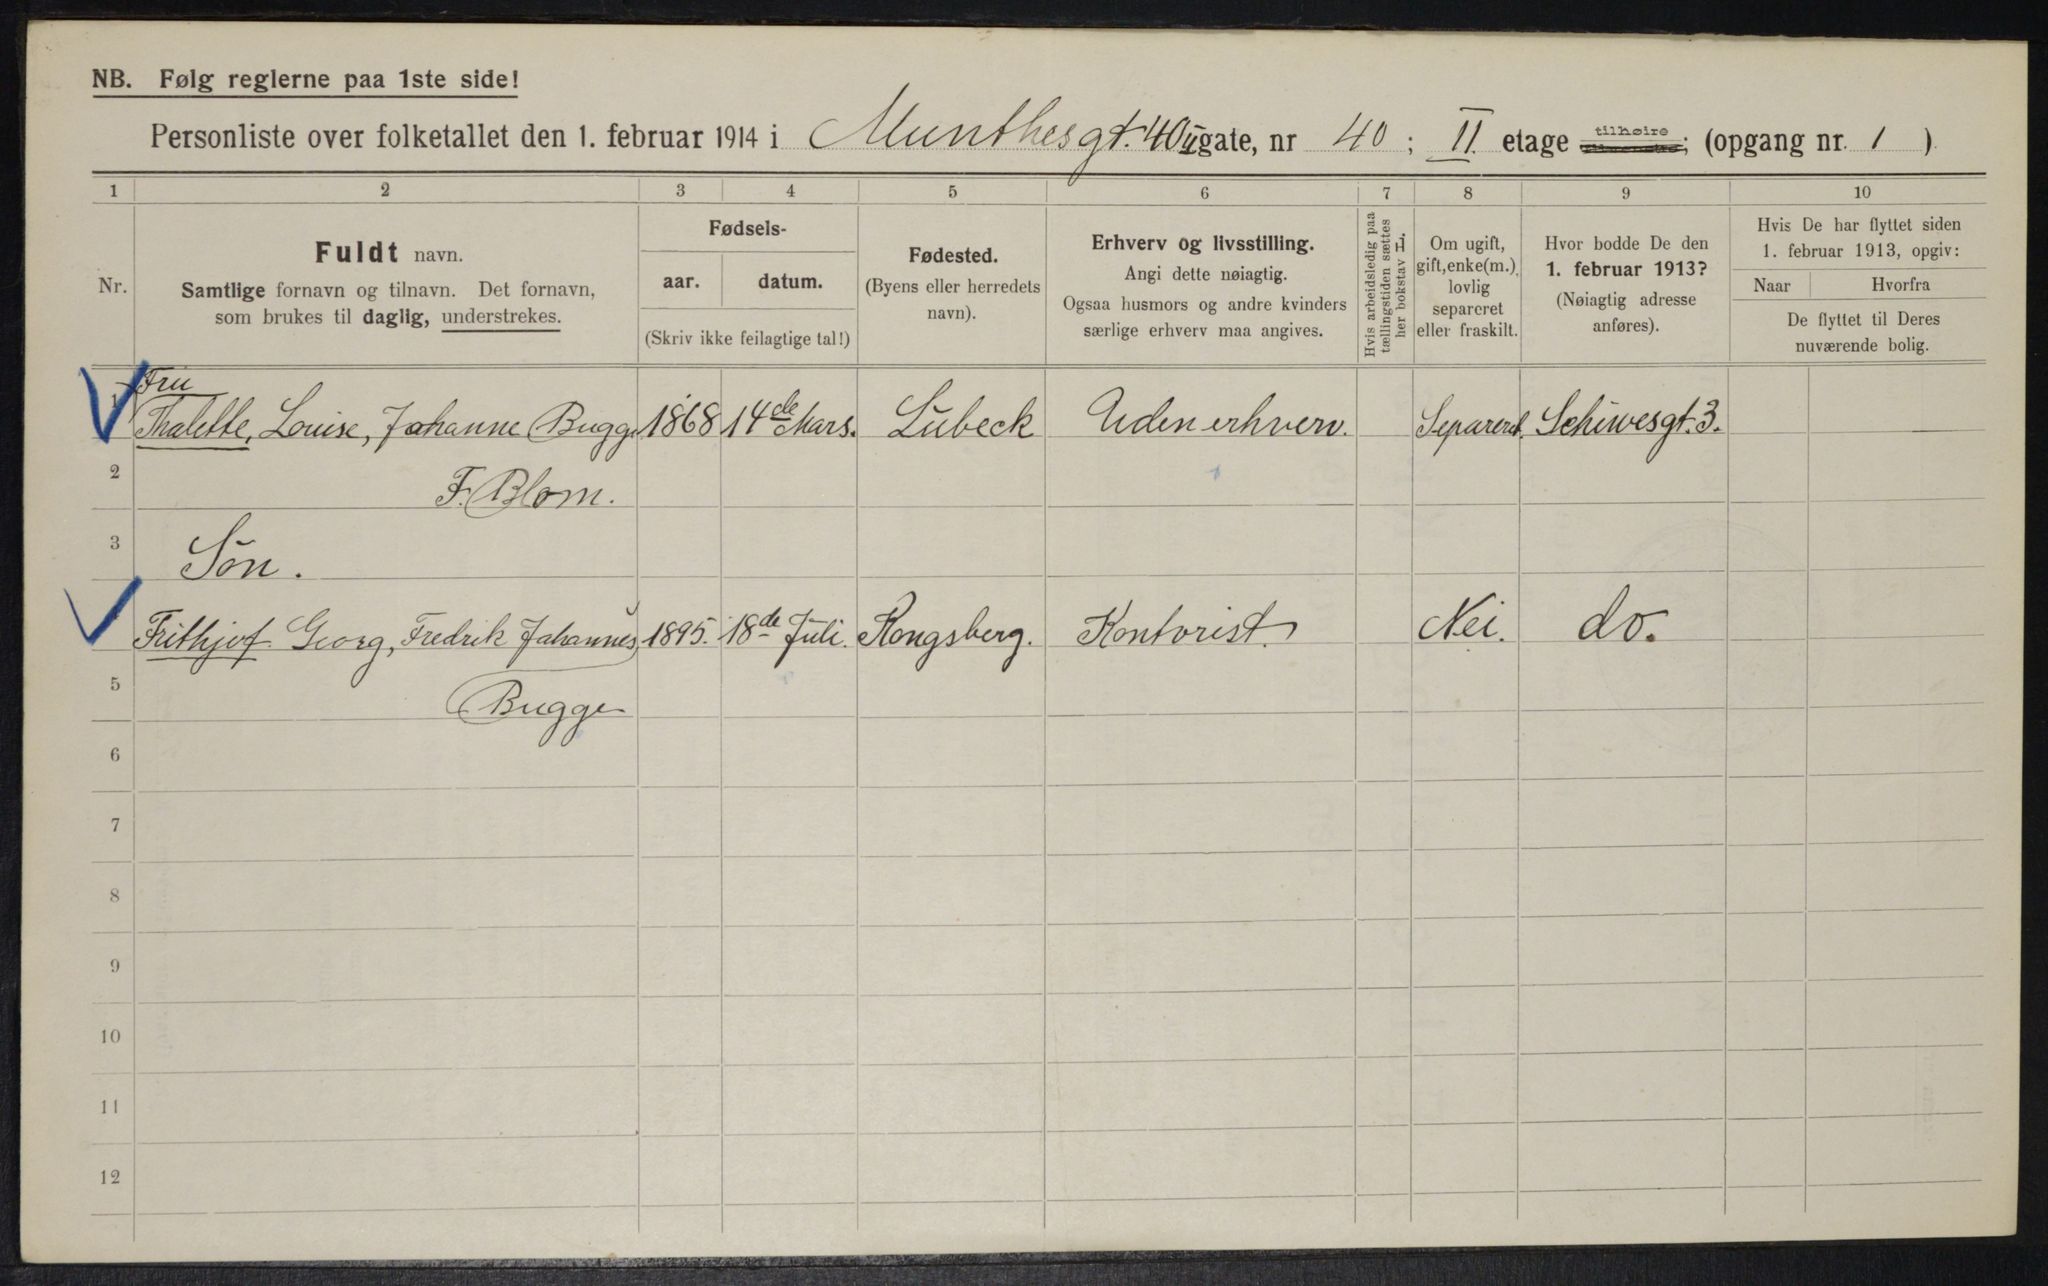 NB. Følg reglerne paa 1ste side!
Personliste over folketallet den 1. februar 1914 i Munthesgt. 40 II gate, nr 40; II. etage tilhøire; (opgang nr. 1 )
1 2 3 4 5 6 7 8 9 10
Nr.
Fuldt navn.
Samtlige fornavn og tilnavn. Det fornavn,
som brukes til daglig, understrekes.
Fødsels-
aar. datum.
(Skriv ikke feilagtige tal!)
Fødested.
(Byens eller herredets
navn).
Erhverv og livsstilling.
Angi dette nøiagtig.
Ogsaa husmors og andre kvinders
særlige erhverv maa angives.
Hvis arbeidsledig paa
tællingstiden sættes
her bokstav L.
Om ugift,
gift, enke(m.),
lovlig
separeret
eller fraskilt.
Hvor bodde De den
1. februar 1913?
(Nøiagtig adresse
anføres).
Hvis De har flyttet siden
1. februar 1913, opgiv:
Naar Hvorfra
De flyttet til Deres
nuværende bolig.
Fru
1 Thalette, Louise, Johanne Bugge 1868 14de Mars. Lübeck Uden erhverv. Separeret. Schivesgt. 3.
2 F. Blom.
3 Sön.
Frithjof Georg, Fredrik Johannes 1895. 18de Juli. Kongsberg. Kontorist. Nei. do.
5 Bugge
6
7
8
9
10
11
12